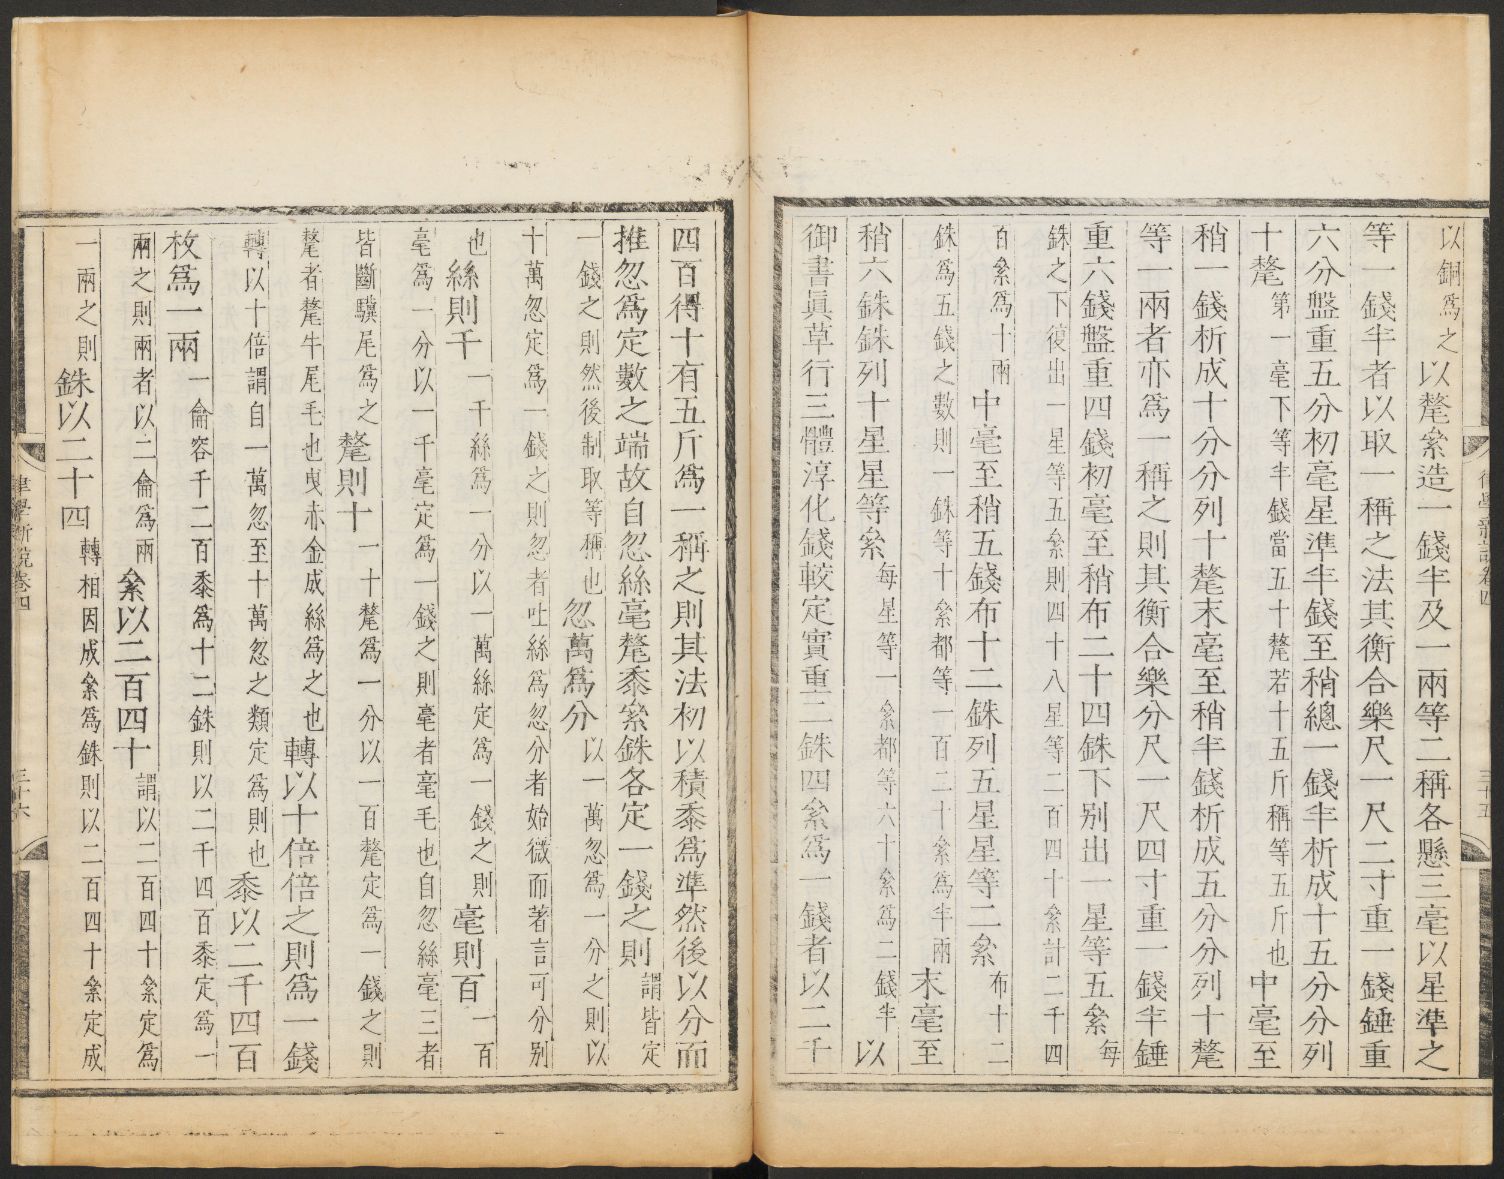 以銅爲之以氂絫造一錢半及一兩等二稱各懸三毫以星準之
等一錢半者以取一稱之法其衡合樂尺一尺二寸重一錢錘重
六分盤重五分初毫星準半錢至稍總一錢半析成十五分分列
十氂第一毫下等半錢當五十氂若十五斤稱等五斤也中毫至
稍一錢析成十分分列十氂末毫至稍半錢析成五分分列十氂
等一兩者亦爲一稱之則其衡合樂分尺一尺四寸重一錢半錘
重六錢盤重四錢初毫至稍布二十四銖下別出一星等五絫每
銖之下復出一星等五絫則四十八星等二百四十絫計二千四
百絫爲十兩中毫至稍五錢布十二銖列五星星等二絫布十二
銖爲五錢之數則一銖等十絫都等一百二十絫爲半兩末毫至
稍六銖銖列十星星等絫每星等一絫都等六十絫爲二錢半以
御書眞草行三體淳化錢較定實重二銖四絫爲一錢者以二千
四百得十有五斤爲一稱之則其法初以積黍爲準然後以分而
推忽爲定數之端故自忽絲毫氂黍絫銖各定一錢之則謂皆定
一錢之則然後制取等稱也忽萬爲分以一萬忽爲一分之則以
十萬忽定爲一錢之則忽者吐絲爲忽分者始微而著言可分別
也絲則千一千絲爲一分以一萬絲定爲一錢之則毫則百一百
毫爲一分以一千毫定爲一錢之則毫者毫毛也自忽絲毫三者
皆斷驥尾爲之氂則十一十氂爲一分以一百氂定爲一錢之則
氂者氂牛尾毛也曳赤金成絲爲之也轉以十倍倍之則爲一錢
轉以十倍謂自一萬忽至十萬忽之類定爲則也黍以二千四百
枚爲一兩一龠容千二百黍爲十二銖則以二千四百黍定爲一
兩之則兩者以二龠爲兩絫以二百四十謂以二百四十絫定爲
一兩之則銖以二十四轉相因成絫爲銖則以二百四十絫定成
律學新說卷四
三十六
三十五